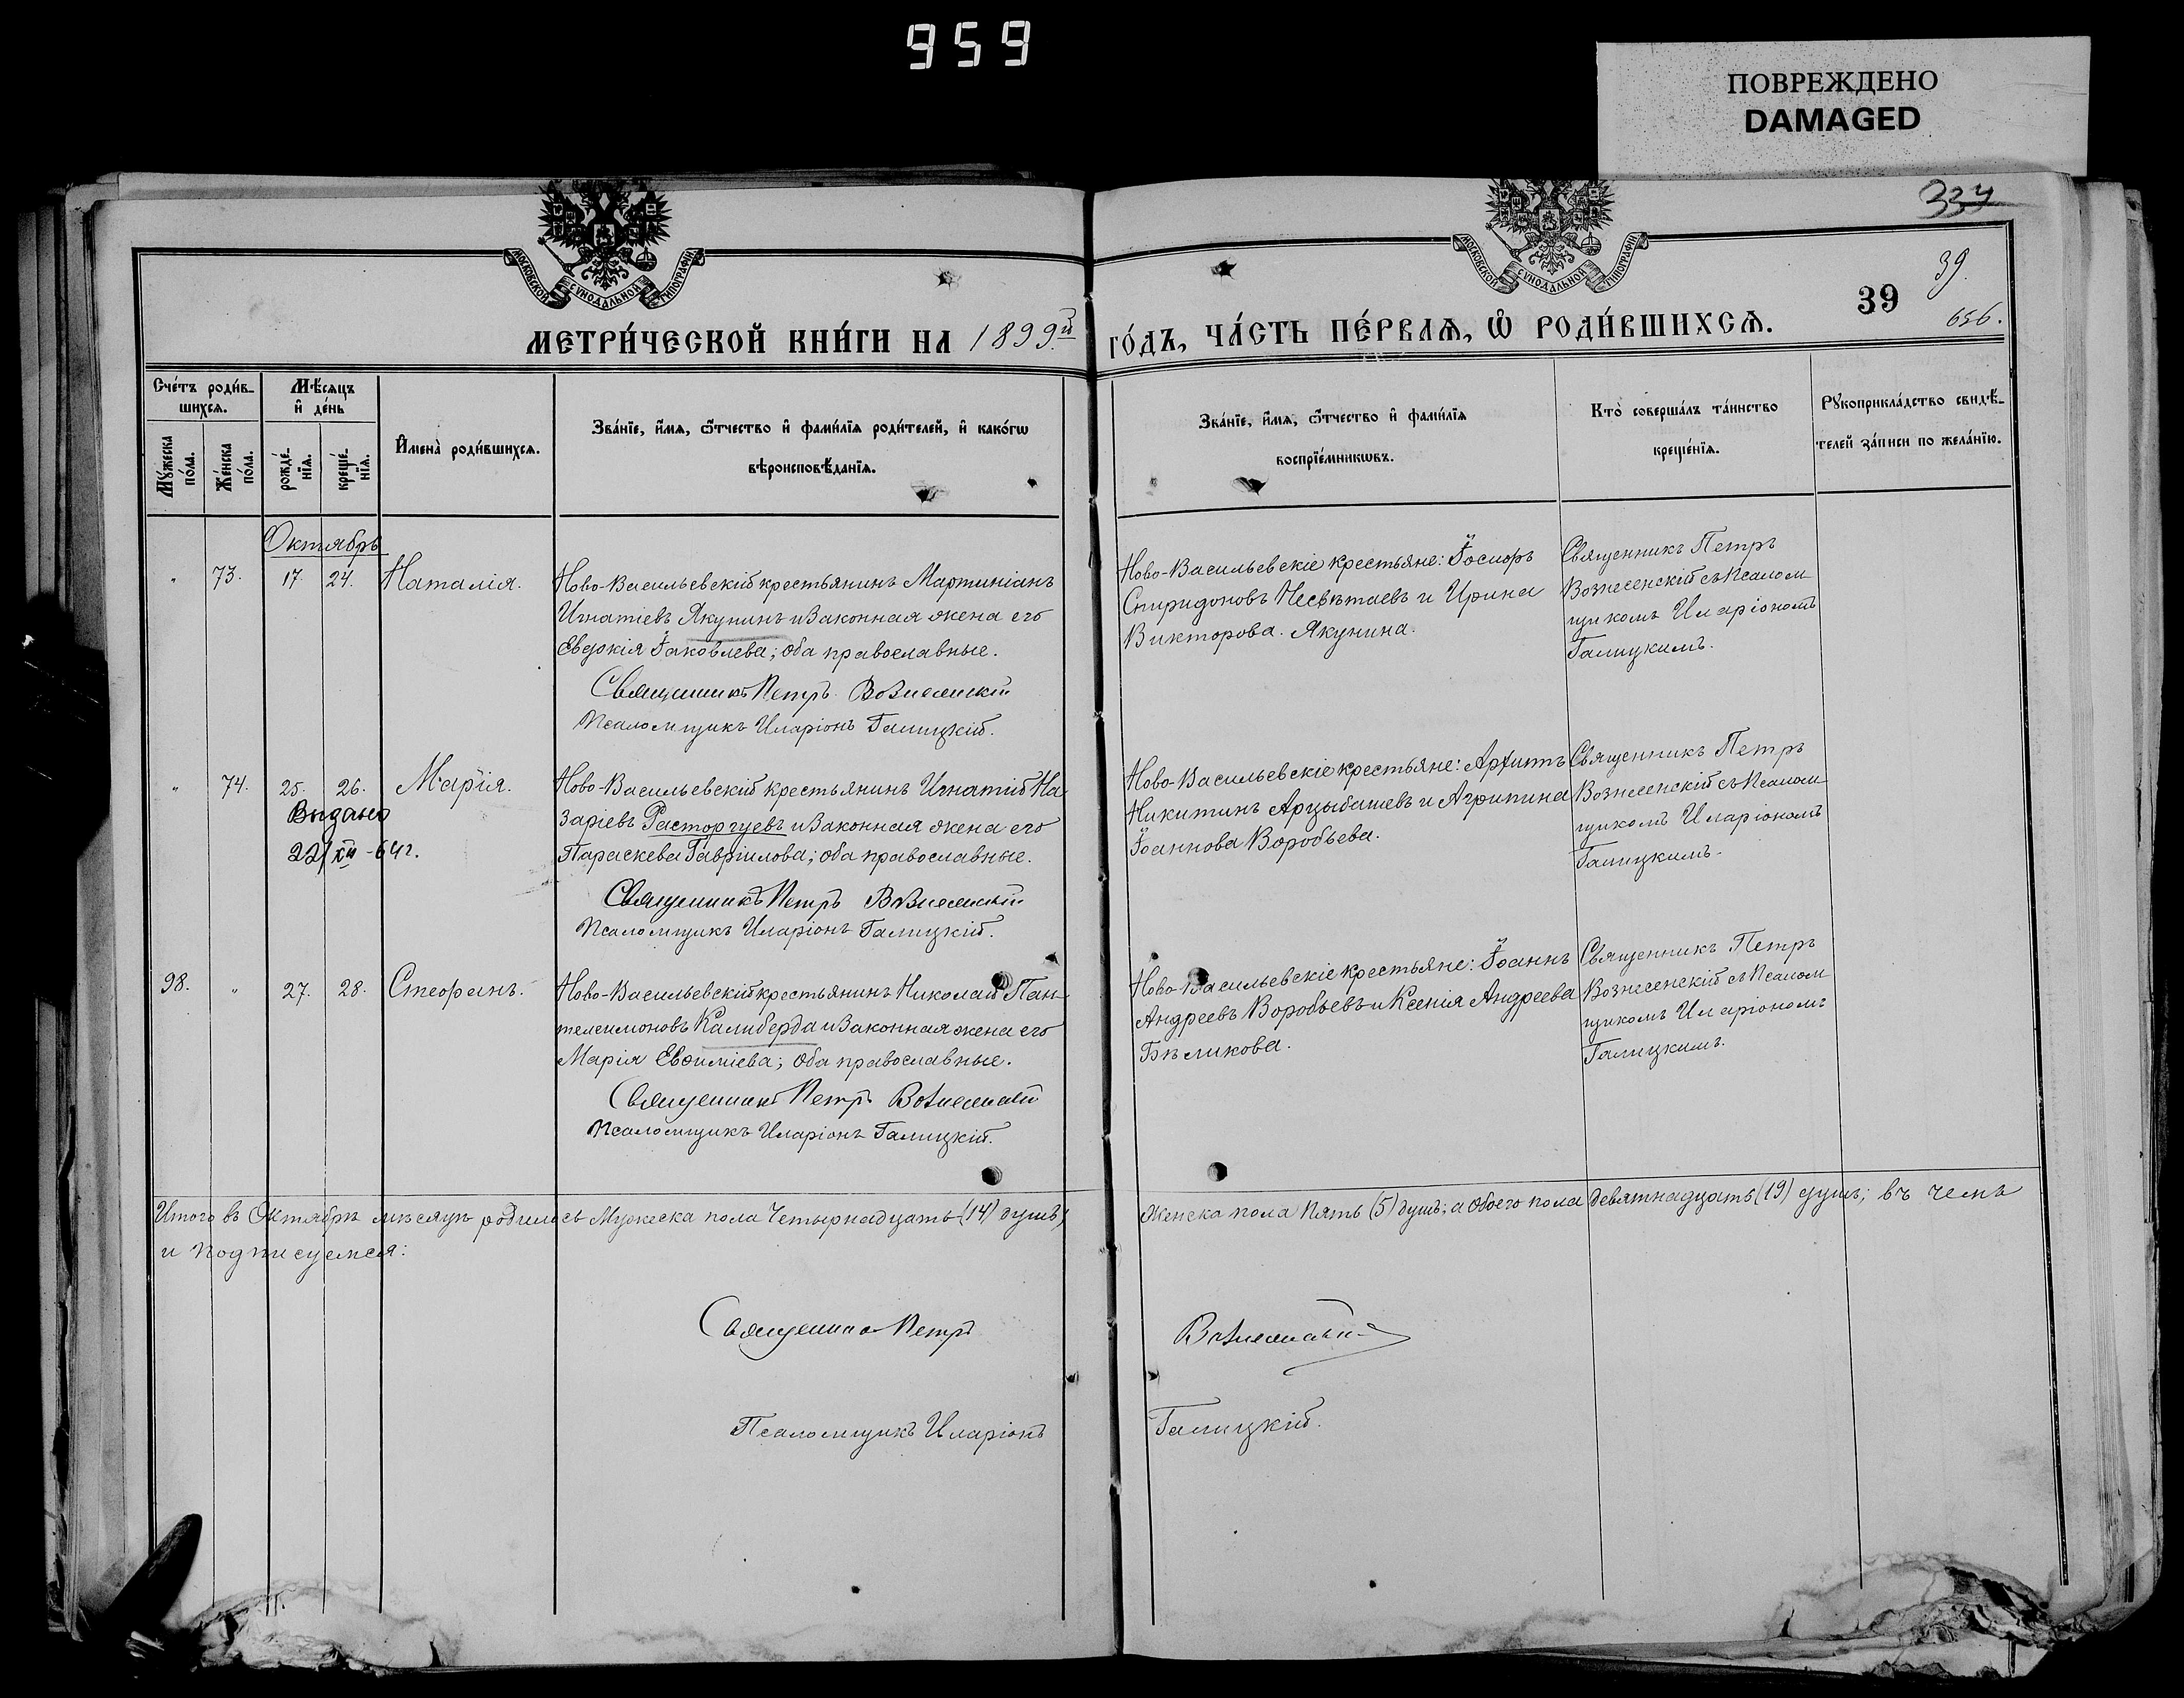 959
ПОВРЕЖДЕНО
DAMAGED
337
МОСКОВСКОЙ СѴНОДАЛЬНОЙ ТИПОГРАФІИ
МОСКОВСКОЙ СѴНОДАЛЬНОЙ ТИПОГРАФІИ
39
39.
656.
МЕТРИ́ЧЕСКОЙ КНИ́ГИ НА 1899й ГО́ДЪ, ЧА́СТЬ ПЕ́РВАѦ, Ѽ РОДИ́ВШИХСѦ.
Сче́тъ роди́в-
шихсѧ.
Мꙋ́жеска
по́ла.
Же́нска
по́ла.
Мѣ́сѧцъ
и҆ де́нь
рожде́-
нїѧ.
креще́-
нїѧ.
И҆мена̀ роди́вшихсѧ.
Зва́нїе, и҆́мѧ, ѻ҆́тчество и҆ фамі́лїѧ роди́телей, и҆ како́гѡ
вѣроисповѣ́данїѧ.
Зва́нїе, и҆́мѧ, ѻ҆́тчество и҆ фамі́лїѧ
воспрїе́мникѡвъ.
Кто̀ соверша́лъ та́инство
креще́нїѧ.
Рꙋкоприкла́дство свидѣ́-
телей за́писи по жела́нїю.
Октябрь
" 73. 17. 24. Наталія.
Ново-Васильевскій крестьянинъ Мартиніанъ
Игнатіевъ Якунинъ и законная жена его
Евдокія Іаковлева; оба православные.
Священникъ Петръ Вознесенскій
Псаломщикъ Иларіонъ Галицкій.
Ново-Васильевскіе крестьяне: Іосифъ
Спиридоновъ Несвѣтаевъ и Ирина
Викторова Якунина.
Священникъ Петръ
Вознесенскій съ Псалом-
щикомъ Иларіономъ
Галицкимъ.
" 74. 25. 26. Марія.
Выдано
22/XII-64г.
Ново-Васильевскій крестьянинъ Игнатій На-
заріевъ Расторгуевъ и законная жена его
Параскева Гавріилова; оба православные.
Священникъ Петръ Вознесенскій
Псаломщикъ Иларіонъ Галицкій.
Ново-Васильевскіе крестьяне: Архипъ
Никитинъ Арцыбашевъ и Агрипина
Іоаннова Воробьева.
Священникъ Петръ
Вознесенскій съ Псалом-
щикомъ Иларіономъ
Галицкимъ.
98. " 27. 28. Стефанъ.
Ново-Васильевскій крестьянинъ Николай Пан-
телеимоновъ Калиберда и законная жена его
Марія Евѳиміева; оба православные.
Священникъ Петръ Вознесенскій
Псаломщикъ Иларіонъ Галицкій.
Ново-Васильевскіе крестьяне: Іоаннъ
Андреевъ Воробьевъ и Ксенія Андреева
Бѣликова.
Священникъ Петръ
Вознесенскій съ Псалом-
щикомъ Иларіономъ
Галицкимъ.
Итого въ Октябрѣ мѣсяцѣ родилось Мужеска пола Четырнадцать (14) душъ; Женска пола Пять (5) душъ; а обоего пола Девятнадцать (19) душъ; въ чемъ
и подписуемся:
Священникъ Петръ Вознесенскій
Псаломщикъ Иларіонъ Галицкій.